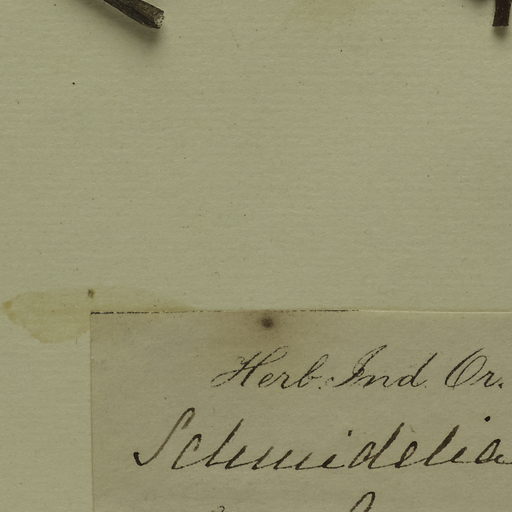 Herb. Ind. Or.
Schmidelia